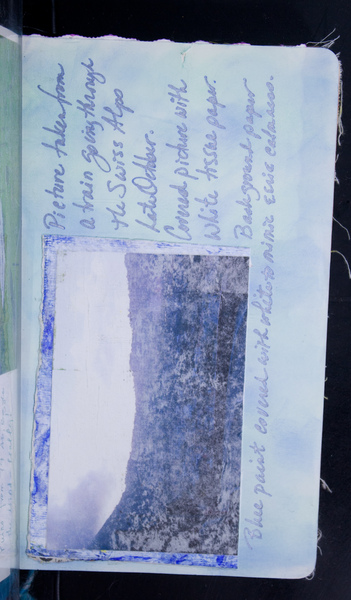 Picture taken from
a train going through
the Swiss Alps
late October.
Covered picture with
White tissue paper.
Background paper
Blue paint covered with white to mimic